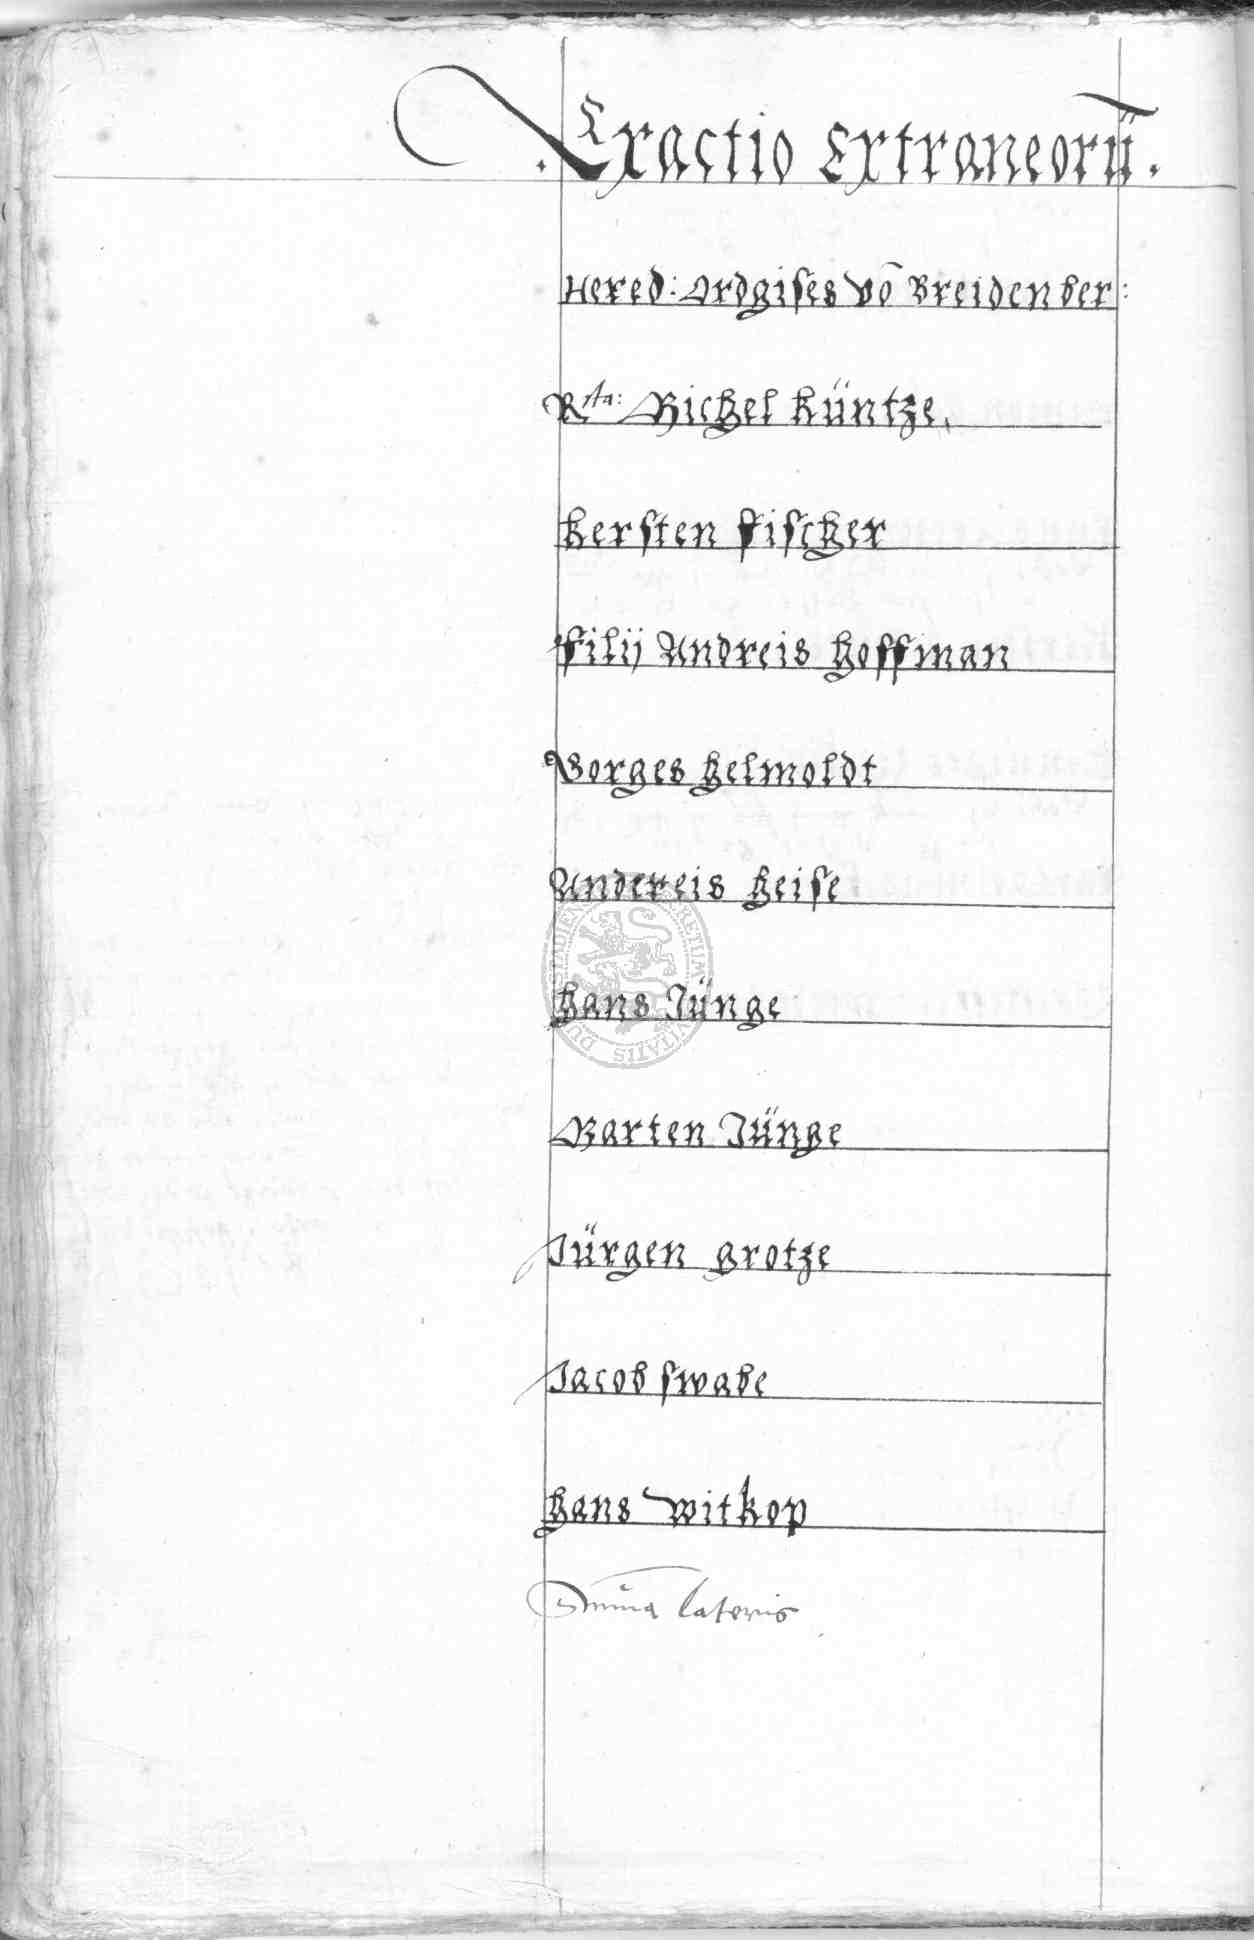 Exactio Extraneorū.
Hered: Ordgises vō Breidenber:
Rta: Michel Küntze,
Kersten Fischer
Filij Andreis Hoffman
Borges Helmoldt
Andereis Heise
Hans Jünge
Marten Jünge
Jürgen Grotze
Jacob Swabe
Hans Witkop
Suma lateris